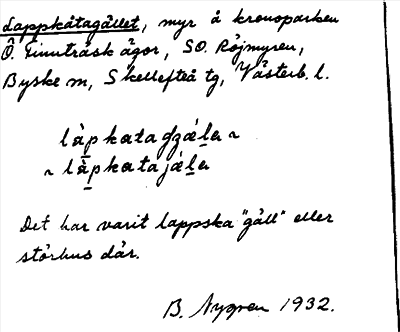 Lappkåtagället, myr å kronoparken
Ö. Finnträsk ägor, SO. Röjmyren,
Byske m, Skellefteå tg, Västerb. l.
làp̠katadzǽl̠ɐ ~
~ là̠pkatajǽl̠ɐ
Det har varit lappska "gäll" eller
störhus där.
B. Nygren 1932.